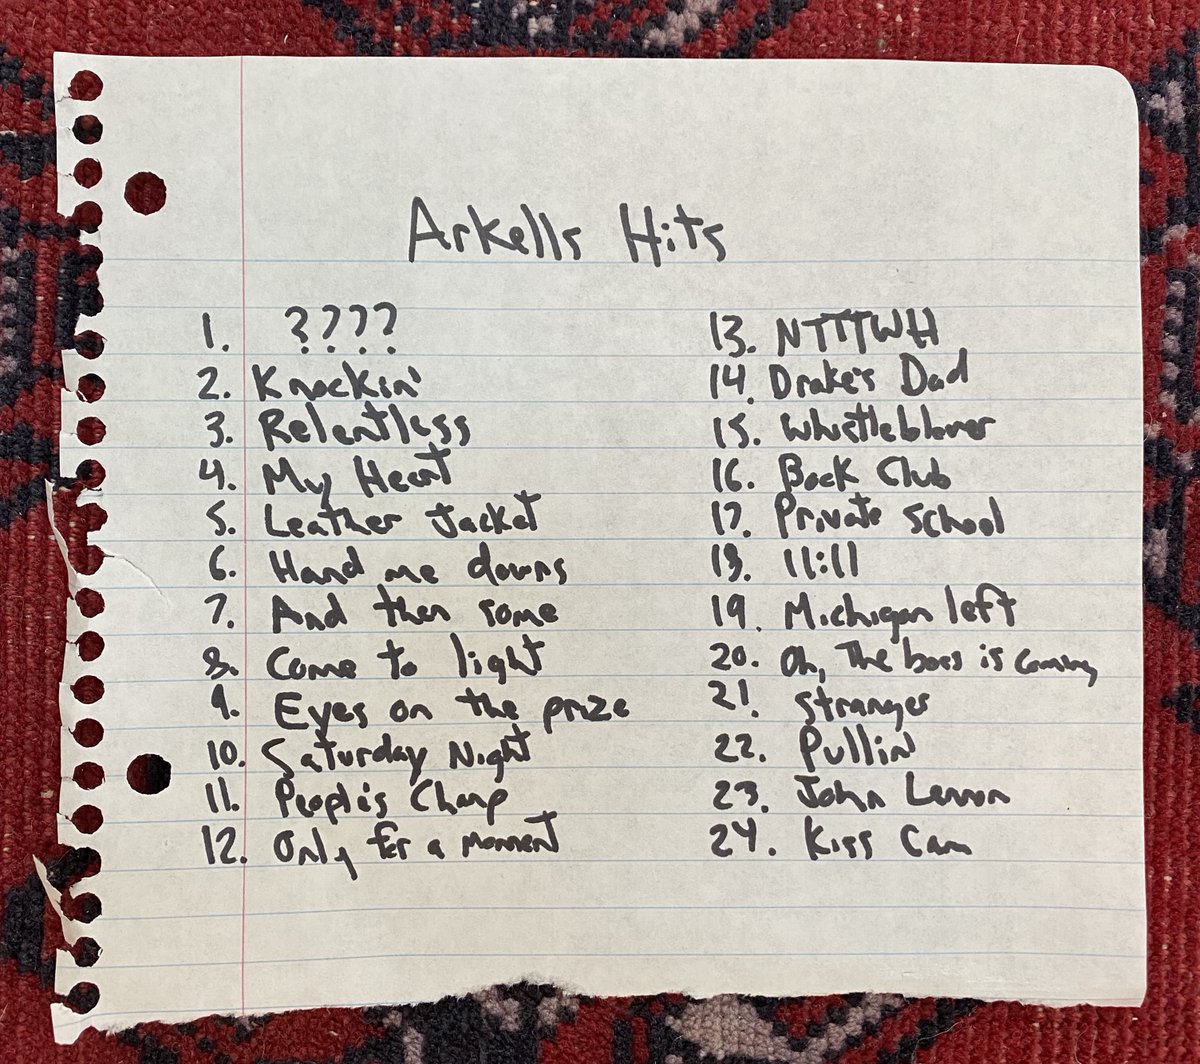 Arkells Hits
1. ????
2. Knockin'
3. Relentless
4. My Heart
5. Leather Jacket
6. Hand me downs
7. And then some
8. Come to light
9. Eyes on the prize
10. Saturday Night
11. People's Champ
12. Only for a moment
13. NTTTWH
14. Drake's Dad
15. Whistleblower
16. Book Club
17. Private School
18. 11:11
19. Michigan left
20. Oh, The boss is coming
21. Stranger
22. Pullin'
23. John Lennon
24. Kiss Cam